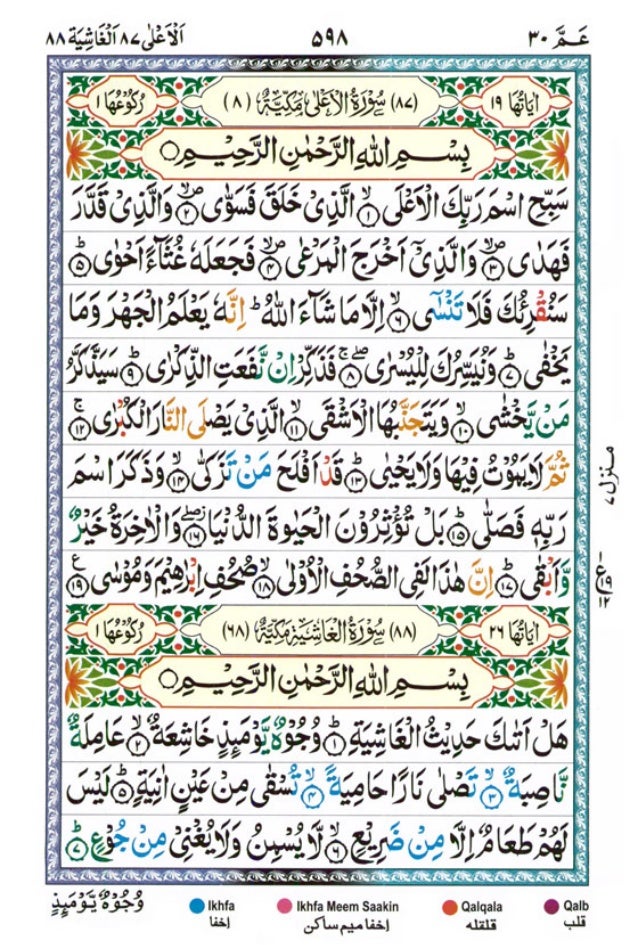 عَمَّ ٣٠
٥٩٨
اَلْاَعْلٰى ٨٧ اَلْغَاشِيَة ٨٨
اٰيَاتُهَا ١٩
(٨٧) سُوْرَةُ الْاَعْلٰى مَكِّيَّةٌ (٨)
رُكُوْعُهَا ١
بِسْمِ اللهِ الرَّحْمٰنِ الرَّحِيْمِ
سَبِّحِ اسْمَ رَبِّكَ الْاَعْلَى ۙ‏﴿١﴾ الَّذِىْ خَلَقَ فَسَوّٰى ۙ‏﴿٢﴾ وَالَّذِىْ قَدَّرَ
فَهَدٰى ۙ‏﴿٣﴾ وَالَّذِىْۤ اَخْرَجَ الْمَرْعٰى ۙ‏﴿٤﴾ فَجَعَلَهٗ غُثَآءً اَحْوٰى ؕ‏﴿٥﴾
سَنُقْرِئُكَ فَلَا تَنْسٰٓى ۙ‏﴿٦﴾ اِلَّا مَا شَآءَ اللهُ ؕ اِنَّهٗ يَعْلَمُ الْجَهْرَ وَمَا
يَخْفٰى ؕ‏﴿٧﴾ وَنُيَسِّرُكَ لِلْيُسْرٰى ۚ‏﴿٨﴾ فَذَكِّرْ اِنْ نَّفَعَتِ الذِّكْرٰى ؕ‏﴿٩﴾ سَيَذَّكَّرُ
مَنْ يَّخْشٰى ۙ‏﴿١٠﴾ وَيَتَجَنَّبُهَا الْاَشْقَى ۙ‏﴿١١﴾ الَّذِىْ يَصْلَى النَّارَ الْكُبْرٰى ۚ‏﴿١٢﴾
ثُمَّ لَا يَمُوْتُ فِيْهَا وَلَا يَحْيٰى ؕ‏﴿١٣﴾ قَدْ اَفْلَحَ مَنْ تَزَكّٰى ۙ‏﴿١٤﴾ وَذَكَرَ اسْمَ
رَبِّهٖ فَصَلّٰى ؕ‏﴿١٥﴾ بَلْ تُؤْثِرُوْنَ الْحَيٰوةَ الدُّنْيَا ۖ‏﴿١٦﴾ وَالْاٰخِرَةُ خَيْرٌ
وَّاَبْقٰى ؕ‏﴿١٧﴾ اِنَّ هٰذَا لَفِى الصُّحُفِ الْاُوْلٰى ۙ‏﴿١٨﴾ صُحُفِ اِبْرٰهِيْمَ وَمُوْسٰى ‏﴿١٩﴾
منزل ٧
ع
١٢
اٰيَاتُهَا ٢٦
(٨٨) سُوْرَةُ الْغَاشِيَةِ مَكِّيَّةٌ (٦٨)
رُكُوْعُهَا ١
بِسْمِ اللهِ الرَّحْمٰنِ الرَّحِيْمِ
هَلْ اَتٰىكَ حَدِيْثُ الْغَاشِيَةِ ؕ‏﴿١﴾ وُجُوْهٌ يَّوْمَئِذٍ خَاشِعَةٌ ۙ‏﴿٢﴾ عَامِلَةٌ
نَّاصِبَةٌ ۙ‏﴿٣﴾ تَصْلٰى نَارًا حَامِيَةً ۙ‏﴿٤﴾ تُسْقٰى مِنْ عَيْنٍ اٰنِيَةٍ ؕ‏﴿٥﴾ لَيْسَ
لَهُمْ طَعَامٌ اِلَّا مِنْ ضَرِيْعٍ ۙ‏﴿٦﴾ لَّا يُسْمِنُ وَلَا يُغْنِىْ مِنْ جُوْعٍ ؕ‏﴿٧﴾
وُجُوْهٌ يَّوْمَئِذٍ
Ikhfa
اِخفا
Ikhfa Meem Saakin
اِخفا میم ساکن
Qalqala
قلقلہ
Qalb
قلب